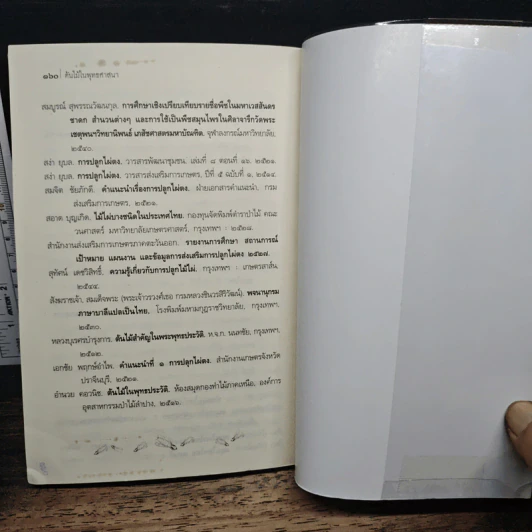 ๑๖๐ | ต้นไม้ในพุทธศาสนา
สมบูรณ์ สุพรรณวัฒนกุล. การศึกษาเชิงเปรียบเทียบรายชื่อพืชในมหาเวสสันดร
ชาดก สำนวนต่างๆ และการใช้เป็นพืชสมุนไพรในศิลาจารึกวัดพระ
เชตุพนฯวิทยานิพนธ์ เภสัชศาสตรมหาบัณฑิต. จุฬาลงกรณ์มหาวิทยาลัย,
๒๕๔๐.
สง่า ยุบล. การปลูกไผ่ตง. วารสารพัฒนาชุมชน. เล่มที่ ๘ ตอนที่ ๑๒. ๒๕๒๑.
สง่า ยุบล. การปลูกไผ่ตง. วารสารส่งเสริมการเกษตร, ปีที่ ๕ ฉบับที่ ๑, ๒๕๑๔.
สมจิต ชัยภักดี. คำแนะนำเรื่องการปลูกไผ่ตง. ฝ่ายเอกสารคำแนะนำ, กรม
ส่งเสริมการเกษตร, ๒๕๒๑.
สอาด บุญเกิด. ไม้ไผ่บางชนิดในประเทศไทย. กองทุนจัดพิมพ์ตำราป่าไม้ คณะ
วนศาสตร์ มหาวิทยาลัยเกษตรศาสตร์, กรุงเทพฯ : ๒๕๒๘.
สำนักงานส่งเสริมการเกษตรภาคตะวันออก. รายงานการศึกษา สถานการณ์
เป้าหมาย แผนงาน และข้อมูลการส่งเสริมการปลูกไผ่ตง ๒๕๒๗.
สุทัศน์ เดชวิสิทธิ์. ความรู้เกี่ยวกับการปลูกไม้ไผ่. กรุงเทพฯ : เกษตรสาส์น,
๒๕๔๔.
สังฆราชเจ้า, สมเด็จพระ (พระเจ้าวรวงศ์เธอ กรมหลวงชินวรสิริวัฒน์). พจนานุกรม
ภาษาบาลีแปลเป็นไทย. โรงพิมพ์มหามกุฏราชวิทยาลัย, กรุงเทพฯ,
๒๕๓๐.
หลวงบุเรศรบำรุงการ. ต้นไม้สำคัญในพระพุทธประวัติ. ห.จ.ก. นนทชัย, กรุงเทพฯ,
๒๕๑๒.
เอกชัย พฤกษ์อำไพ. คำแนะนำที่ ๑ การปลูกไผ่ตง. สำนักงานเกษตรจังหวัด
ปราจีนบุรี. ๒๕๒๑.
อำนวย คอวนิช. ต้นไม้ในพุทธประวัติ. ห้องสมุดกองทำไม้ภาคเหนือ, องค์การ
อุตสาหกรรมป่าไม้ลำปาง, ๒๕๑๖.